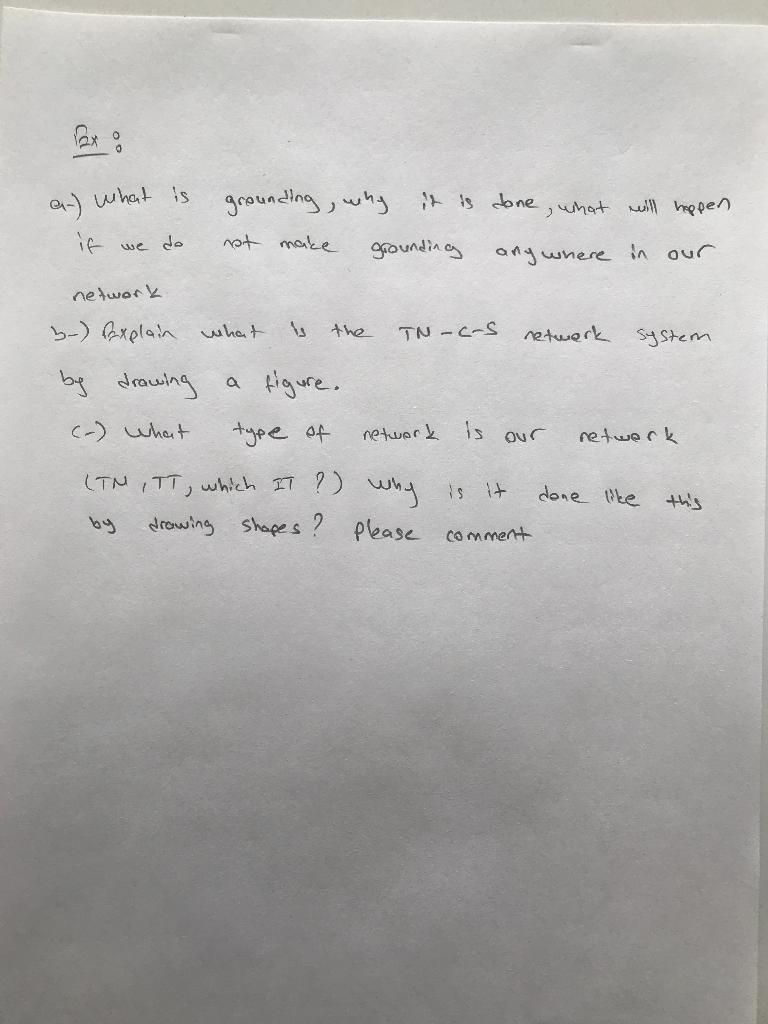 Ex :
a-) What is grounding, why it is done, what will happen
if we do not make grounding anywhere in our
network
b-) Explain what is the TN-C-S network system
by drawing a figure.
c-) What type of network is our network
(TN, TT, which IT ?) Why is it done like this
by drawing shapes? Please comment